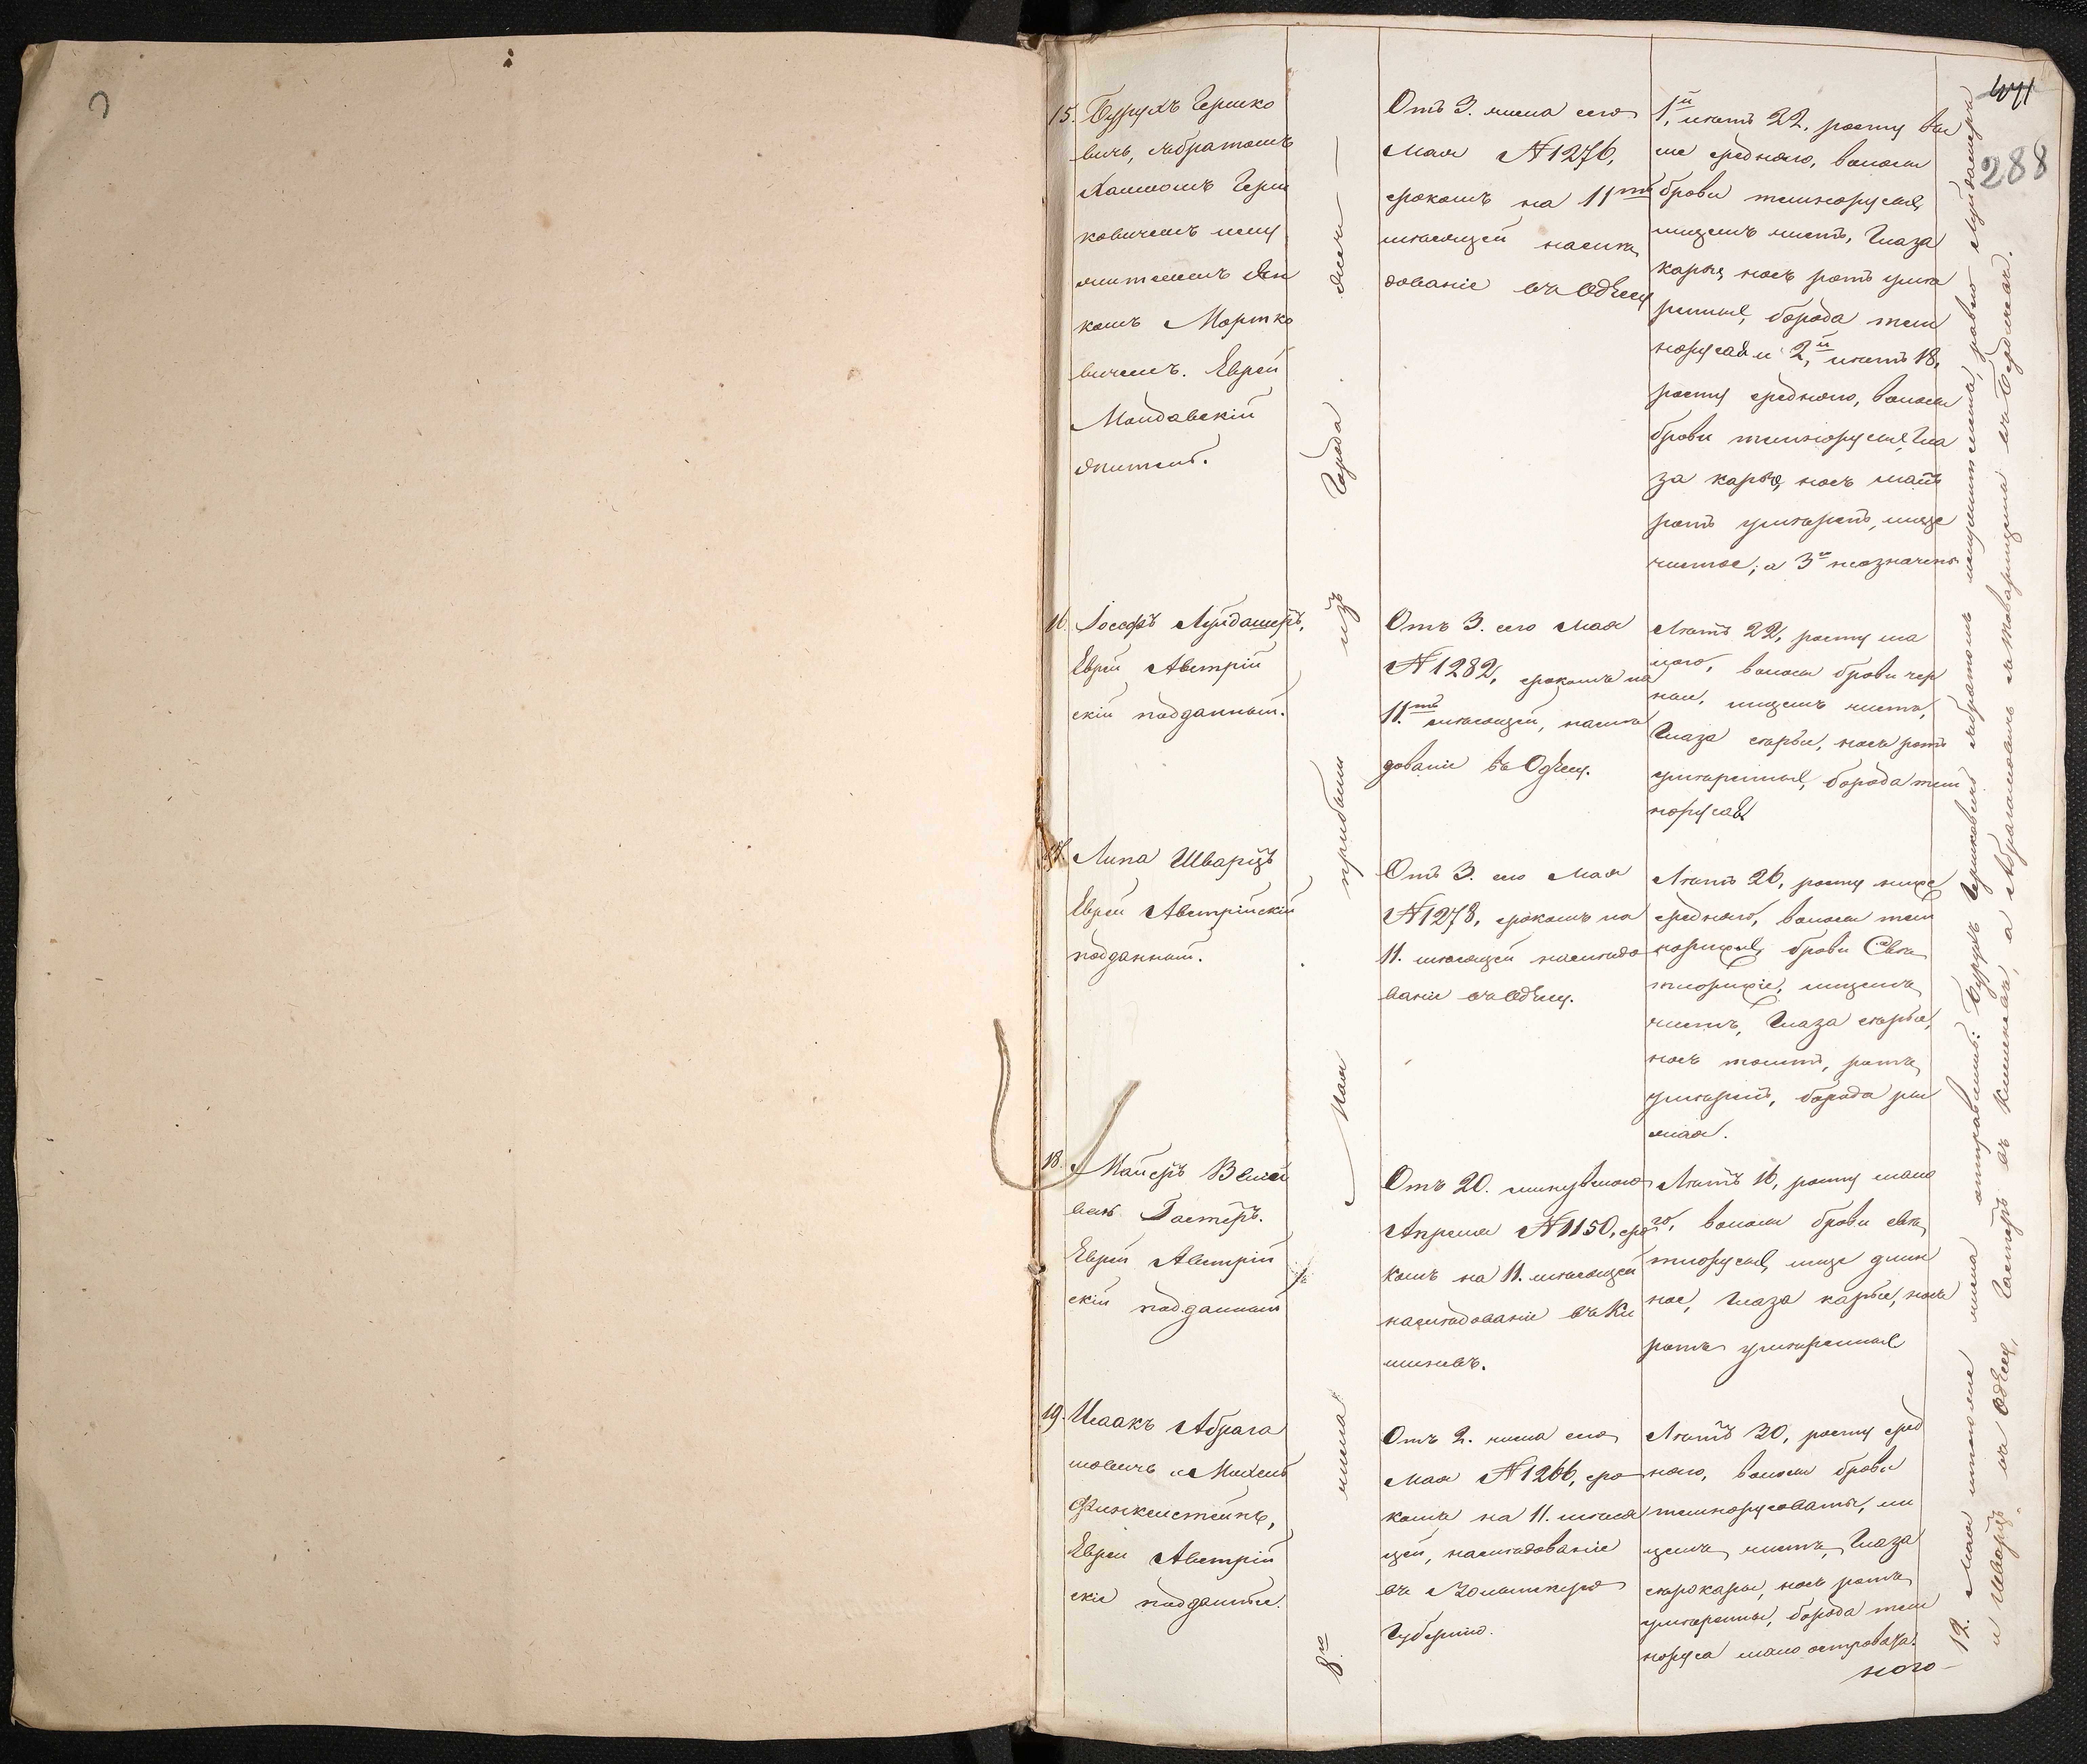 288
15. Бурухъ Гершко
вичъ, съ братомъ
Хаимомъ Герш
ковичемъ и слу
жителемъ Ян
комъ Мортко
вичемъ. Евреи
Молдавскіи
жители.
Отъ 3. числа сего
Мая №1276,
срокомъ на 11ть
мѣсяцей на слѣ
дованіе въ Одессу
1й, лѣтъ 22, росту вы
ше средняго, волосы
брови темнорусые,
лицемъ чистъ, глаза
каріе, носъ ротъ умѣ
ренные, борода тем
норусая и 2й, лѣтъ 18,
росту средняго, волосы
брови темнорусые, гла
за каріе, носъ малъ
ротъ умѣренъ, лице
чистое; а 3й не означенъ
16. Іосефъ Лундашеръ,
Еврей Австрій
скій подданный.
Отъ 3. сего Мая
№1282, срокомъ на
11.ть мѣсяцей, на слѣ
дованіе въ Одессу.
Лѣтъ 22, росту ма
лаго, волосы брови чер
ные, лицемъ чистъ,
глаза сѣрые, носъ ротъ
умѣренные, борода тем
норусая
17. Липа Шварцъ
Еврей Австрійскій
подданный.
Отъ 3. сего Мая
№1278, срокомъ на
11. мѣсяцей на слѣдо
ваніе въ Одессу.
Лѣтъ 26, росту ниже
средняго, волосы тем
норыжіе, брови Свѣ
тлорыжіе, лицемъ
чистъ, глаза сѣрые,
носъ толстъ, ротъ
умѣренъ, борода ры
жая.
18. Маіеръ
Гастеръ.
Еврей Австрій
скій подданный
Отъ 20. минувшаго
Апреля №1150, сро
комъ на 11. мѣсяцей
на слѣдованіе въ Ки
шиневъ.
Лѣтъ 16, росту мало
го, волосы брови свѣ
тлорусые, лице длин
ное, глаза каріе, носъ
ротъ умѣренные
19. Исаакъ Абрага
мовичъ и Михель
Финкельстейнъ,
Евреи Австрій
скіе подданные.
Отъ 2. числа сего
Мая №1266, сро
комъ на 11. мѣся
цей, на слѣдованіе
въ
Губернію.
Лѣтъ 30, росту сред
няго, волосы брови
темнорусоватые, ли
цемъ чистъ, глаза
сѣрокаріе, носъ ротъ
умѣренные, борода тем
норуса мало островата.
ного
8го числа Мая прибыли изъ города Яссъ
12. Мая числа отправились: Бурухъ Гершковичъ съ братомъ и служителемъ, равно Лундашеръ
и Шварцъ въ Одессу, Гастеръ въ Кишиневъ, а Абрагамовичъ съ товарищемъ въ